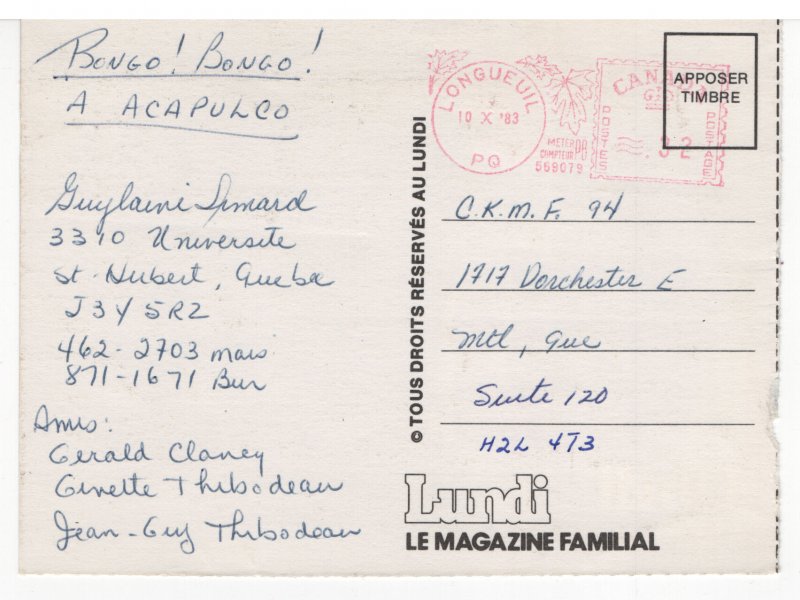 Bongo! Bongo!
A ACAPULCO
Guylaine Simard
3310 Universite
St. Hubert, Quebec
J3Y 5R2
462-2703 mais
871-1671 Bur
Amis:
Gerald Clancy
Ginette Thibodeau
Jean-Guy Thibodeau
© TOUS DROITS RÉSERVÉS AU LUNDI
LONGUEUIL
10 X '83
PQ
METER
COMPTEUR PB
569079
CANADA
POSTES
POSTAGE
.32
APPOSER
TIMBRE
C.K.M.F. 94
1717 Dorchester E
Mtl, Que
Suite 120
H2L 4T3
Lundi
LE MAGAZINE FAMILIAL